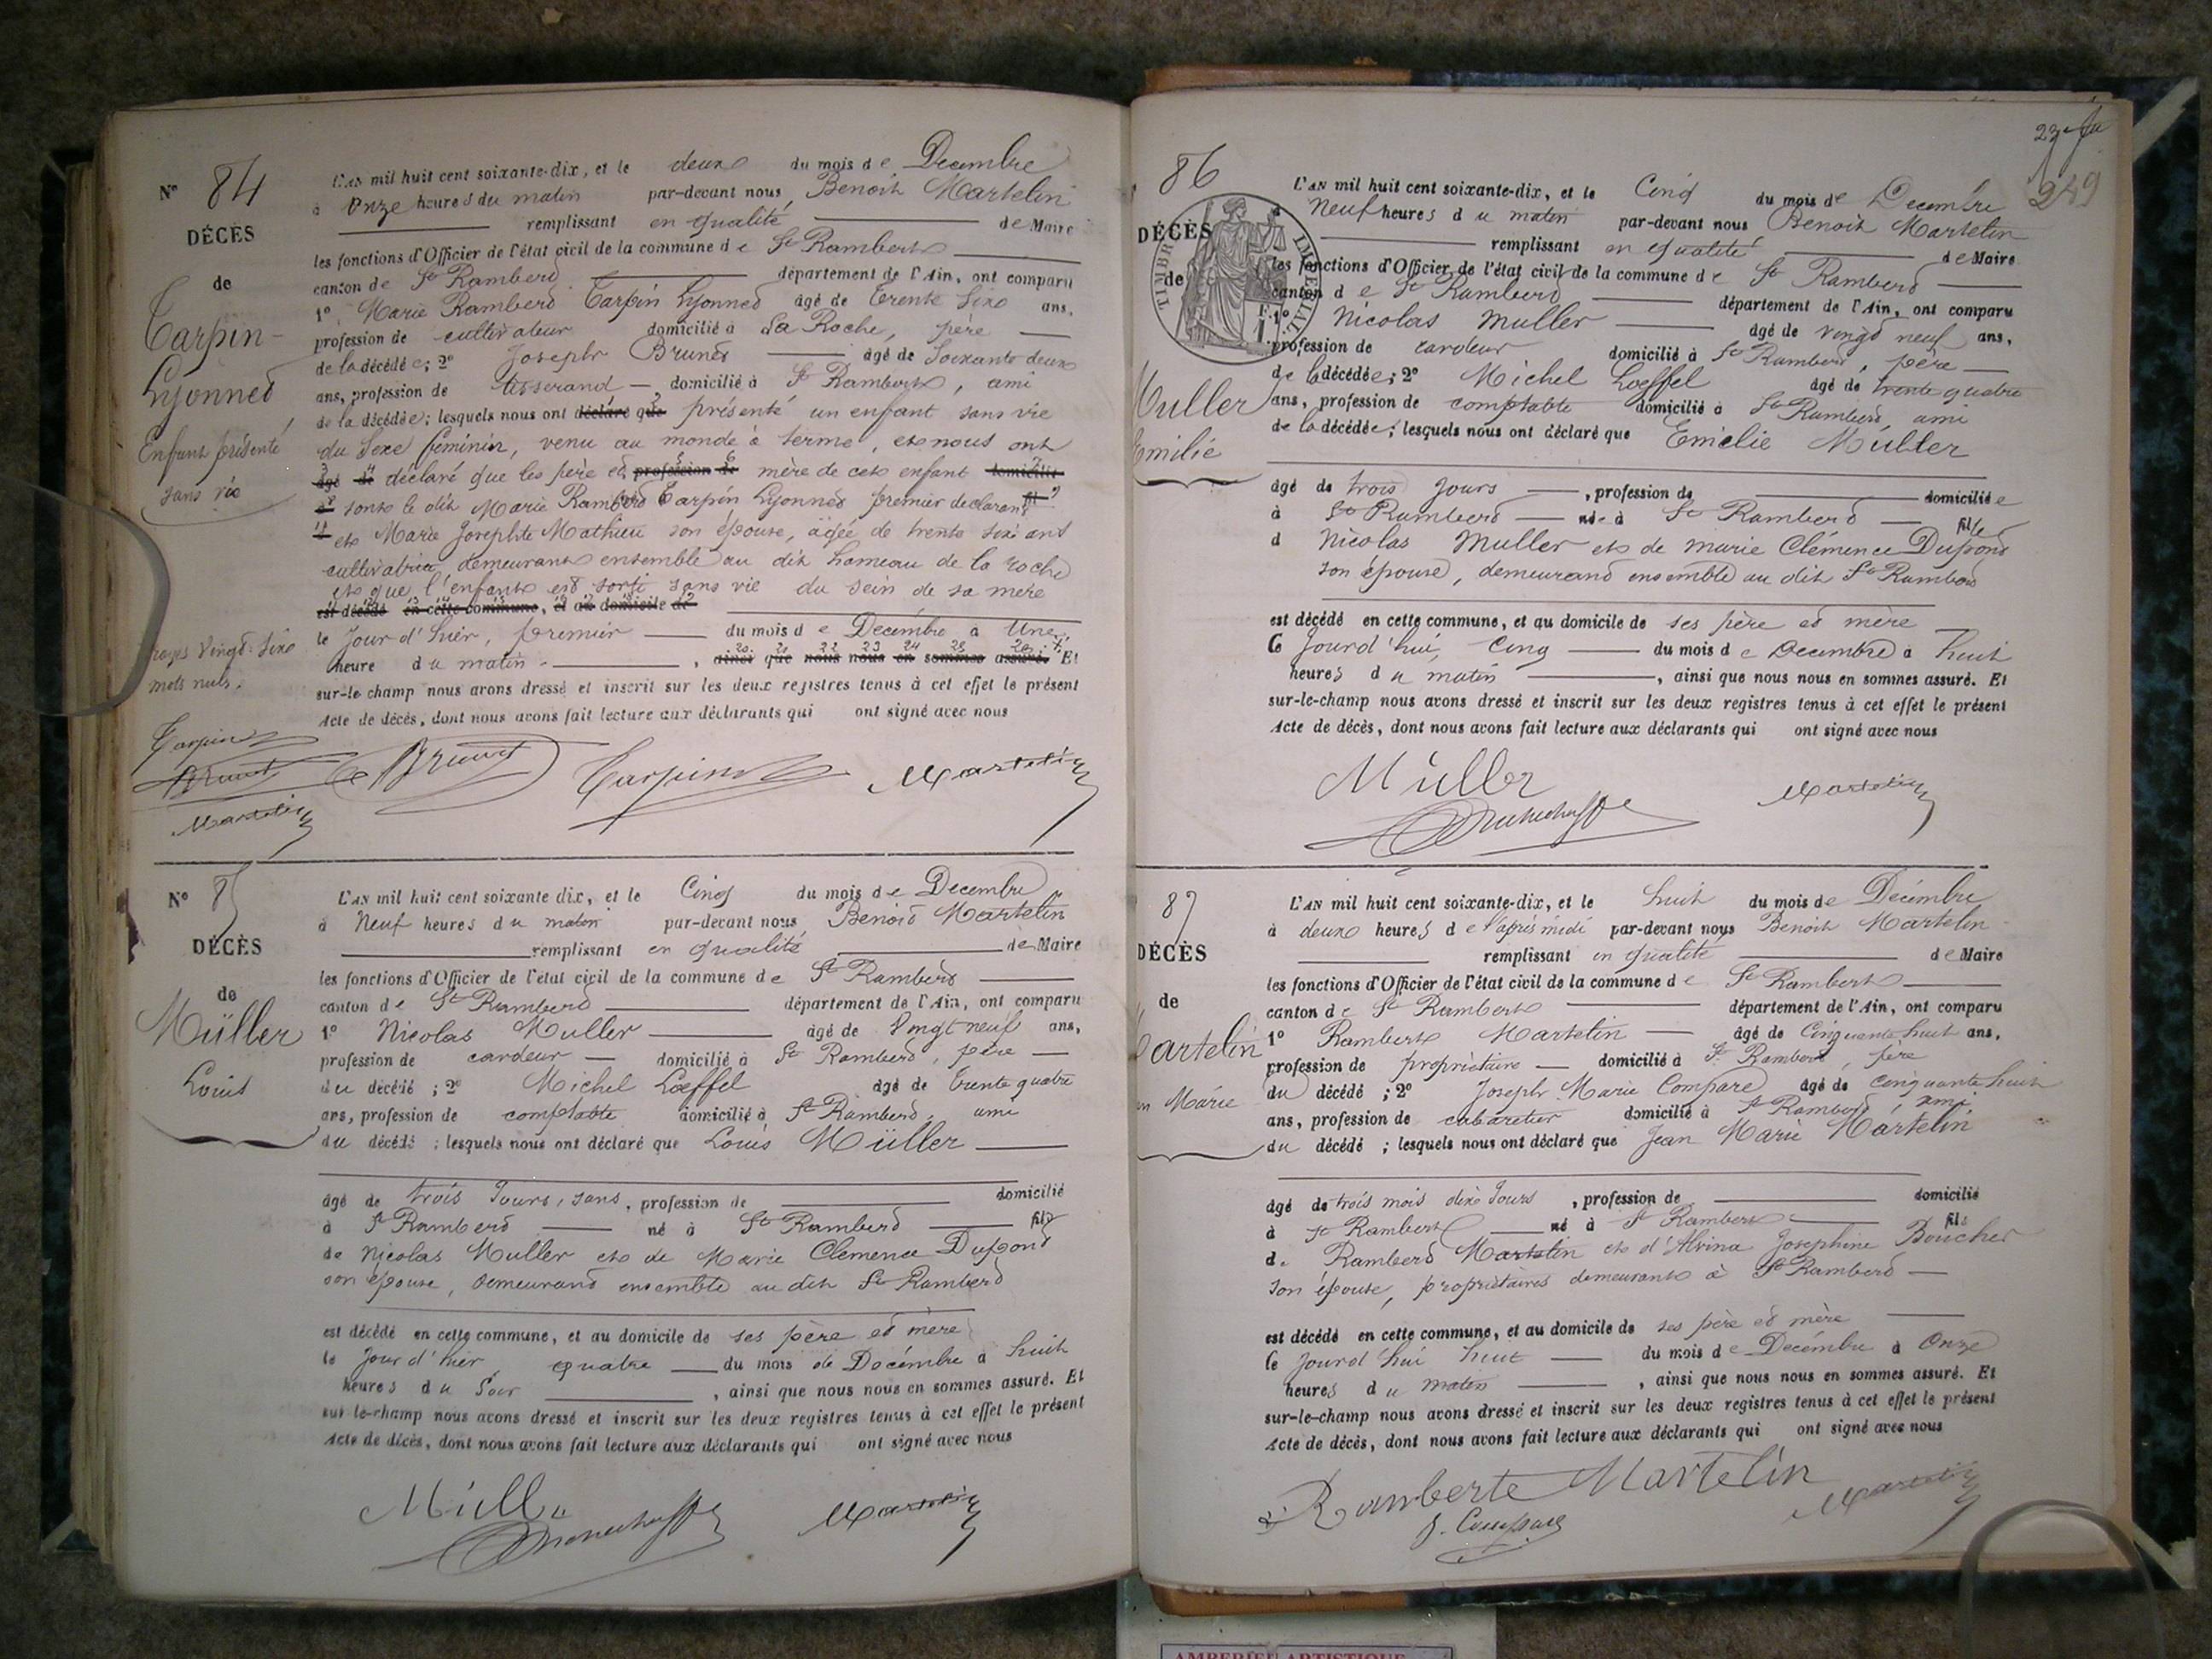 N° 84
DÉCÈS
de
Tarpin-
Lyonned
Enfant présenté
sans vie
L'AN mil huit cent soixante-dix, et le deux du mois de Decembre
à Onze heures du matin par-devant nous, Benoit Martelin
remplissant en qualité de Maire
les fonctions d'Officier de l'état civil de la commune de St Rambert
canton de St Ramberd département de l'Ain, ont comparu
1° Marie Ramberd Tarpin Lyonned âgé de trente six ans,
profession de cultivateur domicilié à La Roche, père
de la décédée; 2° Joseph Brunet âgé de Soixante deux
ans, profession de tisserand domicilié à St Rambert, ami
de la décédée; lesquels nous ont déclaré que présenté un enfant sans vie
du Sexe féminin, venu au monde à terme, et nous ont
âgé de déclaré que les père et profession de mère de cet enfant domicilié
à sont le dit Marie Ramberd Tarpin Lyonned premier declarant fil
et Marie Josephte Mathieu son épouse, âgée de trente six ans
cultivatrice demeurant ensemble au dit hameau de la roche
et que l'enfant est sorti sans vie du sein de sa mère
est décédé en cette commune, et au domicile de
le Jour d'hier, premier du mois de Decembre à Une
heure du matin , ainsi que nous nous en sommes assuré. Et
sur-le champ nous avons dressé et inscrit sur les deux registres tenus à cet effet le présent
Acte de décès, dont nous avons fait lecture aux déclarants qui ont signé avec nous
rayés Vingt-Six
mots nuls.
Tarpin
Brunet
Martelin
Brunet Tarpin Martelin
N° 85
DÉCÈS
de
Müller
Louis
L'AN mil huit cent soixante dix, et le Cinq du mois de Decembre
à Neuf heures du matin par-devant nous Benoid Martelin
remplissant en qualité de Maire
les fonctions d'Officier de l'état civil de la commune de St Ramberd
canton de St Ramberd département de l'Ain, ont comparu
1° Nicolas Muller âgé de Vingt neuf ans,
profession de cardeur domicilié à St Ramberd, père
du décédé ; 2° Michel Loeffel âgé de trente quatre
ans, profession de comptable domicilié à St Ramberd, ami
du décédé ; lesquels nous ont déclaré que Louis Müller
âgé de trois Jours, sans, profession de domicilié
à St Ramberd né à St Ramberd fils
de Nicolas Muller et de Marie Clemence Dupond
son épouse, demeurand ensemble au dit St Ramberd
est décédé en cette commune, et au domicile de ses père ed mère
le Jour d'hier, quatre du mois de Decémbre à huit
heures du Soir , ainsi que nous nous en sommes assuré. Et
sur-le-champ nous avons dressé et inscrit sur les deux registres tenus à cet effet le présent
Acte de décès, dont nous avons fait lecture aux déclarants qui ont signé avec nous
Müller Martelin
249
86
DÉCÈS
de
Muller
Emilie
TIMBRE IMPERIAL
L'AN mil huit cent soixante-dix, et le Cinq du mois de Decembre
à Neuf heures du matin par-devant nous Benoit Martelin
remplissant en qualité de Maire
les fonctions d'Officier de l'état civil de la commune de St Ramberd
canton de St Ramberd département de l'Ain, ont comparu
1° Nicolas Muller âgé de vingd neuf ans,
profession de cardeur domicilié à St Ramberd, père
de la décédée; 2° Michel Loeffel âgé de trente quatre
ans, profession de comptable domicilié à St Ramberd, ami
de la décédée; lesquels nous ont déclaré que Emelie Müller
âgé de trois Jours , profession de domiciliée
à St Ramberd née à St Ramberd fille
d Nicolas Muller et de marie Clémence Dupond
son épouse, demeurand ensemble au dit St Ramberd
est décédé en cette commune, et au domicile de ses père ed mère
le Jourd'hui, Cinq du mois de Decembre à huit
heures du matin , ainsi que nous nous en sommes assuré. Et
sur-le-champ nous avons dressé et inscrit sur les deux registres tenus à cet effet le présent
Acte de décès, dont nous avons fait lecture aux déclarants qui ont signé avec nous
Müller Martelin
87
DÉCÈS
de
Martelin
Marie
L'AN mil huit cent soixante-dix, et le huit du mois de Decémbre
à deux heures de l'après midi par-devant nous Benoit Martelin
remplissant en qualité de Maire
les fonctions d'Officier de l'état civil de la commune de St Rambert
canton de St Rambert département de l'Ain, ont comparu
1° Rambert Martelin âgé de Cinquante huit ans,
profession de propriétaire domicilié à St Ramberd, père
du décédé ; 2° Joseph Marie Compare âgé de cinquante huit
ans, profession de cabaretier domicilié à St Ramberd, ami
du décédé ; lesquels nous ont déclaré que Jean Marie Martelin
âgé de trois mois dix Jours , profession de domicilié
à St Rambert né à St Rambert fils
de Ramberd Martelin et d'Alvina Josephine Boucher
Son épouse, propriétaires demeurant à St Ramberd
est décédé en cette commune, et au domicile de ses père ed mère
le Jourd'hui huit du mois de Decémbre à Onze
heures du matin , ainsi que nous nous en sommes assuré. Et
sur-le-champ nous avons dressé et inscrit sur les deux registres tenus à cet effet le présent
Acte de décès, dont nous avons fait lecture aux déclarants qui ont signé avec nous
Ramberte Martelin Martelin
AMBERIEU ARTISTIQUE